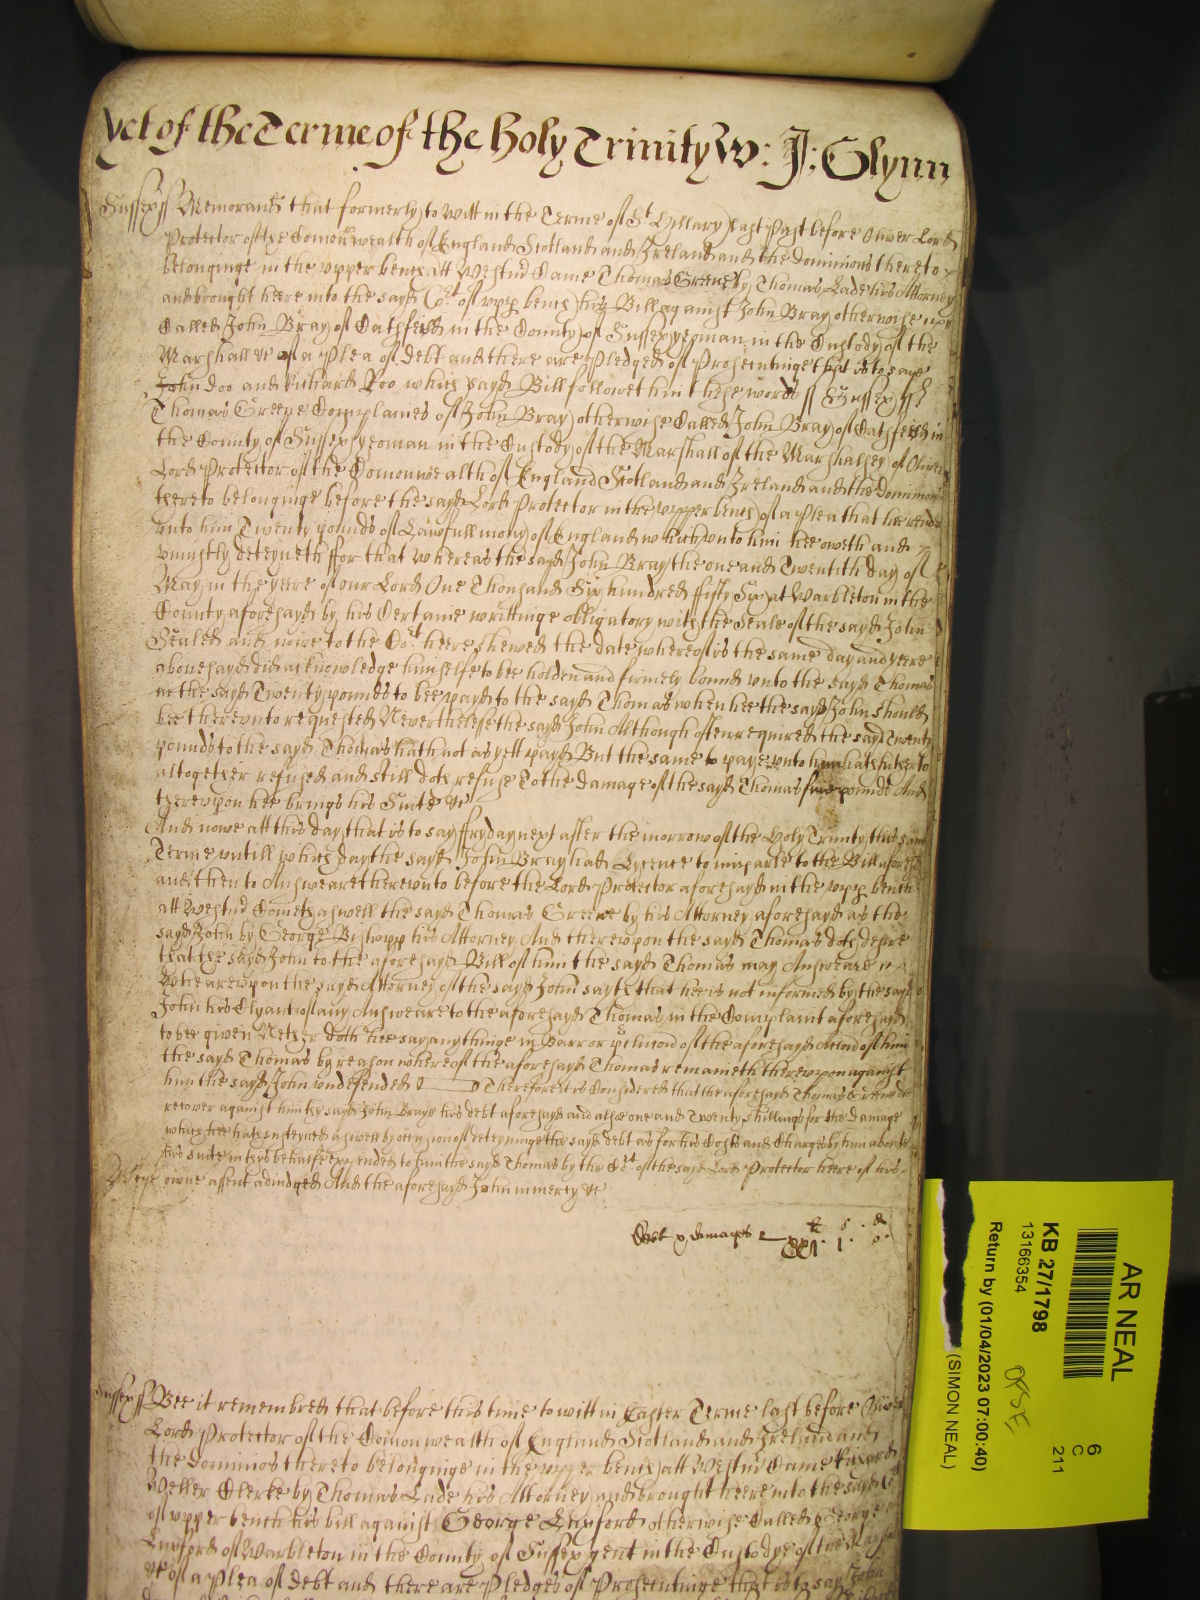 yet of the Terme of the Holy Trinity W: J: Glynn
Sussex ss Memorand that formerly to witt in the Terme of St Hillary last past before Oliver Lord
Protector of the Comonwealth of England Scotland and Ireland and the Dominions thereto
belonginge in the upper bench att Westmr Came Thomas Greene by Thomas Lade his Attorney
and brought heere into the sayd Cort of upp bench his Bill against John Bray otherwise
Called John Bray of Cathfeild in the County of Sussex yeoman in the Custody of the
Marshall &c of a Plea of debt and there are Pledges of Prosecutinge that is to saye
John Doo and Richard Roo which sayd Bill followeth in these words ss Sussex ss
Thomas Greene Complaines of John Bray otherwise Called John Bray of Cathfeild in
the County of Sussex yeoman in the Custody of the Marshall of the Marshalsey of Oliver
Lord Protector of the Comonwealth of England Scotland and Ireland and the Dominions
thereto belonginge before the sayd Lord Protector in the upper bench of a Plea that hee render
unto him Twenty pounds of Lawfull mony of England which unto him hee oweth and
uniustly deteyneth ffor that whereas the sayd John Bray the one and Twentith day of
May in the yeere of our Lord One Thousand Six hundred fifty Six at Warbleton in the
County aforesayd by his Certaine writtinge obligatory with the Seale of the sayd John
Sealed and nowe to the Cort heere shewed the date whereof is the same day and yeere
abovesayd did acknowledge himselfe to bee holden and firmely bound unto the sayd Thomas
in the sayd Twenty pounds to bee payd to the sayd Thomas when hee the sayd John should
bee thereunto requested Neverthelesse the sayd John Although often required the sayd Twenty
pounds to the sayd Thomas hath not as yett payd But the same to paye unto him hath hitherto
altogether refused and still doth refuse To the damage of the sayd Thomas five pounds And
thereupon hee brings his Suite &c
And nowe att this day that is to say ffryday next after the morrow of the Holy Trinity this same
Terme untill which day the sayd John Bray had Lycence to imparle to the Bill aforesd
and then to Answeare thereunto before the Lord Protector aforesayd in the upp bench
att Westmr Cometh aswell the sayd Thomas Greene by his Attorney aforesayd as the
sayd John by George Bishopp his Attorney And thereupon the sayd Thomas doth desire
that the sayd John to the aforesayd Bill of him the sayd Thomas may Answeare
Wheareupon the sayd Attorney of the sayd John sayth that hee is not informed by the sayd
John his Clyant of any Answeare to the aforesayd Thomas in the Complaint aforesayd
to bee given Nether doth hee say any thinge in Barr or of the aforesayd Accion of him
the sayd Thomas by reason whereof the aforesayd Thomas remaineth thereupon against
him the sayd John undefended Therefore it is Considered that the aforesayd Thomas Greene do
recover against him the sayd John Bray his debt aforesayd and alsoe one and Twenty shillings for the damage
which hee hath susteyned aswell by occasion of deteyninge the sayd debt as for his Costs and Charges by him about
his suite in this behalfe expended to him the sayd Thomas by the Cort of the sayd Lord Protector heere of his
owne assent adiudged And the aforesayd John in mercy &c
Debt & damages li s d
xxi. i. o.
Sussex ss Bee it remembred that before this time to witt in Easter Terme last before Oliver
Lord Protector of the Comonwealth of England Scotland and Ireland and
the Dominions thereto belonginge in the upper bench att Westmr Came Richard
Weller Clerke by Thomas Lade his Attorney and brought heere into the sayd Cort
of upper bench his bill against George Luxford otherwise Called George
Luxford of Warbleton in the County of Sussex gent in the Custodye of the Marshall
&c of a Plea of debt and there are Pledges of Prosecutinge that is to say John
AR NEAL
KB 27/1798
13166354
Return by (01/04/2023 07:00:40)
(SIMON NEAL)
6
C
211